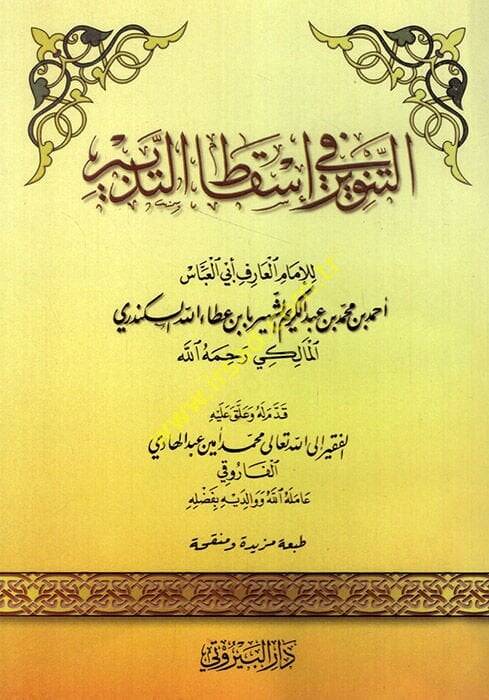 التنوير في إسقاط التدبير
للإمام العارف أبي العباس
أحمد بن محمد بن عبد الكريم الشهير بابن عطاء الله السكندري
المالكي رحمه الله
قدم له وعلق عليه
الفقير إلى الله تعالى محمد أمين عبد الهادي
الفاروقي
عامله الله ووالديه بفضله
طبعة مزيدة ومنقحة
دار البيروتي